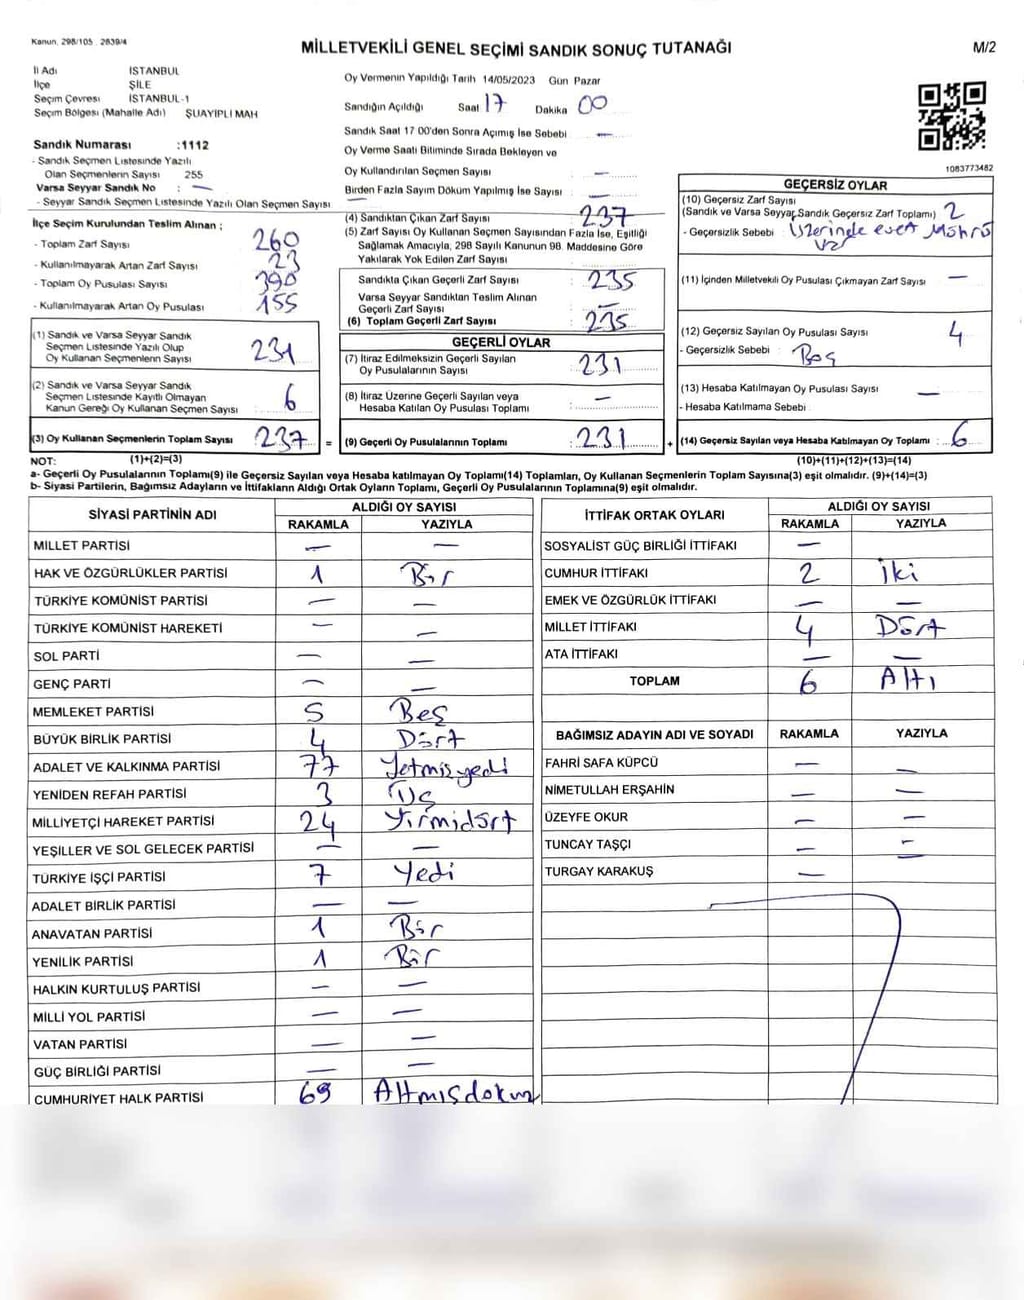 Kanun. 298/105 . 2839/4
MİLLETVEKİLİ GENEL SEÇİMİ SANDIK SONUÇ TUTANAĞI
M/2
İl Adı İSTANBUL
İlçe ŞİLE
Seçim Çevresi İSTANBUL-1
Seçim Bölgesi (Mahalle Adı) ŞUAYIPLI MAH
Sandık Numarası :1112
- Sandık Seçmen Listesinde Yazılı
Olan Seçmenlerin Sayısı 255
Varsa Seyyar Sandık No : —
- Seyyar Sandık Seçmen Listesinde Yazılı Olan Seçmen Sayısı —
Oy Vermenin Yapıldığı Tarih 14/05/2023 Gün Pazar
Sandığın Açıldığı Saat 17 Dakika 00
Sandık Saat 17 00'den Sonra Açımış İse Sebebi —
Oy Verme Saati Bitiminde Sırada Bekleyen ve
Oy Kullandırılan Seçmen Sayısı : —
Birden Fazla Sayım Döküm Yapılmış İse Sayısı : —
1083773482
İlçe Seçim Kurulundan Teslim Alınan ;
- Toplam Zarf Sayısı 260
- Kullanılmayarak Artan Zarf Sayısı 23
- Toplam Oy Pusulası Sayısı 390
- Kullanılmayarak Artan Oy Pusulası 155
(1) Sandık ve Varsa Seyyar Sandık
Seçmen Listesinde Yazılı Olup
Oy Kullanan Seçmenlerin Sayısı 231
(2) Sandık ve Varsa Seyyar Sandık
Seçmen Listesinde Kayıtlı Olmayan
Kanun Gereği Oy Kullanan Seçmen Sayısı 6
(3) Oy Kullanan Seçmenlerin Toplam Sayısı 237 =
(4) Sandıktan Çıkan Zarf Sayısı : 237
(5) Zarf Sayısı Oy Kullanan Seçmen Sayısından Fazla İse, Eşitliği
Sağlamak Amacıyla, 298 Sayılı Kanunun 98. Maddesine Göre
Yakılarak Yok Edilen Zarf Sayısı :
Sandıkta Çıkan Geçerli Zarf Sayısı : 235
Varsa Seyyar Sandıktan Teslim Alınan
Geçerli Zarf Sayısı : —
(6) Toplam Geçerli Zarf Sayısı : 235
GEÇERLİ OYLAR
(7) İtiraz Edilmeksizin Geçerli Sayılan
Oy Pusulalarının Sayısı : 231
(8) İtiraz Üzerine Geçerli Sayılan veya
Hesaba Katılan Oy Pusulası Toplamı : —
(9) Geçerli Oy Pusulalarının Toplamı : 231 +
GEÇERSİZ OYLAR
(10) Geçersiz Zarf Sayısı
(Sandık ve Varsa Seyyar Sandık Geçersiz Zarf Toplamı) 2
- Geçersizlik Sebebi : Üzerinde evet Mührü
(11) İçinden Milletvekili Oy Pusulası Çıkmayan Zarf Sayısı : —
(12) Geçersiz Sayılan Oy Pusulası Sayısı : 4
- Geçersizlik Sebebi : Boş
(13) Hesaba Katılmayan Oy Pusulası Sayısı : —
- Hesaba Katılmama Sebebi
(14) Geçersiz Sayılan veya Hesaba Katılmayan Oy Toplamı : 6
NOT: (1)+(2)=(3) (10)+(11)+(12)+(13)=(14)
a- Geçerli Oy Pusulalarının Toplamı(9) ile Geçersiz Sayılan veya Hesaba katılmayan Oy Toplamı(14) Toplamları, Oy Kullanan Seçmenlerin Toplam Sayısına(3) eşit olmalıdır. (9)+(14)=(3)
b- Siyasi Partilerin, Bağımsız Adayların ve İttifakların Aldığı Ortak Oyların Toplamı, Geçerli Oy Pusulalarının Toplamına(9) eşit olmalıdır.
SİYASİ PARTİNİN ADI ALDIĞI OY SAYISI
RAKAMLA YAZIYLA
MİLLET PARTİSİ — —
HAK VE ÖZGÜRLÜKLER PARTİSİ 1 Bir
TÜRKİYE KOMÜNİST PARTİSİ — —
TÜRKİYE KOMÜNİST HAREKETİ — —
SOL PARTİ — —
GENÇ PARTİ — —
MEMLEKET PARTİSİ 5 Beş
BÜYÜK BİRLİK PARTİSİ 4 Dört
ADALET VE KALKINMA PARTİSİ 77 Yetmişyedi
YENİDEN REFAH PARTİSİ 3 Üç
MİLLİYETÇİ HAREKET PARTİSİ 24 Yirmidört
YEŞİLLER VE SOL GELECEK PARTİSİ — —
TÜRKİYE İŞÇİ PARTİSİ 7 Yedi
ADALET BİRLİK PARTİSİ — —
ANAVATAN PARTİSİ 1 Bir
YENİLİK PARTİSİ 1 Bir
HALKIN KURTULUŞ PARTİSİ — —
MİLLİ YOL PARTİSİ — —
VATAN PARTİSİ — —
GÜÇ BİRLİĞİ PARTİSİ — —
CUMHURİYET HALK PARTİSİ 69 Altmışdokuz
İTTİFAK ORTAK OYLARI ALDIĞI OY SAYISI
RAKAMLA YAZIYLA
SOSYALİST GÜÇ BİRLİĞİ İTTİFAKI —
CUMHUR İTTİFAKI 2 İki
EMEK VE ÖZGÜRLÜK İTTİFAKI — —
MİLLET İTTİFAKI 4 Dört
ATA İTTİFAKI — —
TOPLAM 6 Altı
BAĞIMSIZ ADAYIN ADI VE SOYADI RAKAMLA YAZIYLA
FAHRİ SAFA KÜPCÜ — —
NİMETULLAH ERŞAHİN — —
ÜZEYFE OKUR — —
TUNCAY TAŞÇI — —
TURGAY KARAKUŞ —